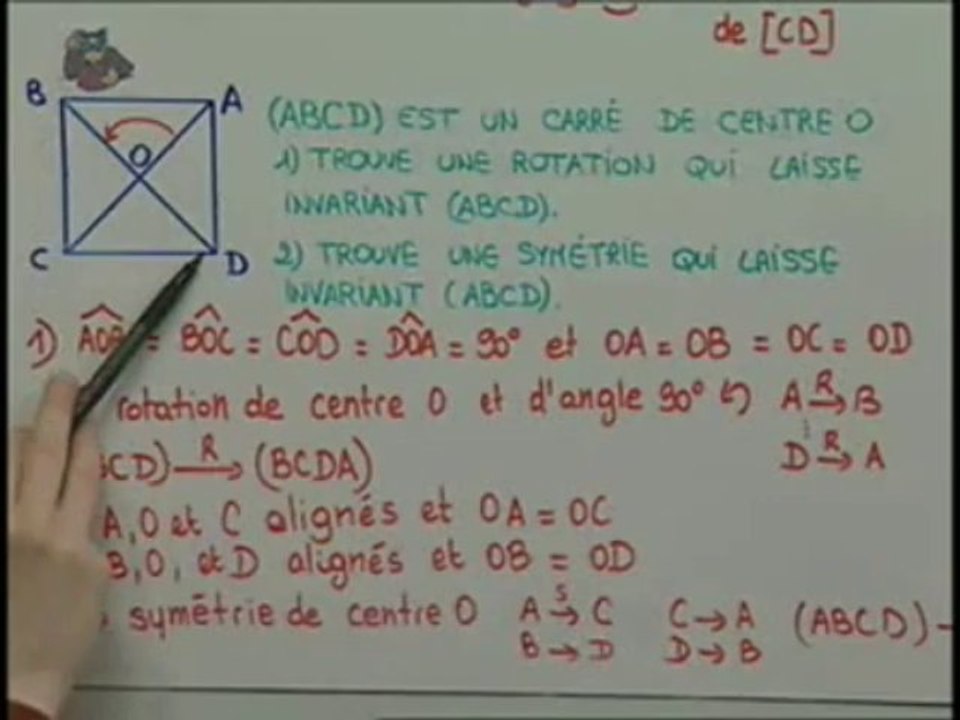 de [CD]
B A
(ABCD) EST UN CARRÉ DE CENTRE O
1) TROUVE UNE ROTATION QUI LAISSE
INVARIANT (ABCD).
O
C D
2) TROUVE UNE SYMÉTRIE QUI LAISSE
INVARIANT (ABCD).
1) AOB = BOC = COD = DOA = 90° et OA = OB = OC = OD
rotation de centre O et d'angle 90° ↺ A R→ B
D R→ A
BCD) R→ (BCDA)
A, O et C alignés et OA = OC
B, O, et D alignés et OB = OD
symétrie de centre O A S→ C C → A (ABCD) →
B → D D → B